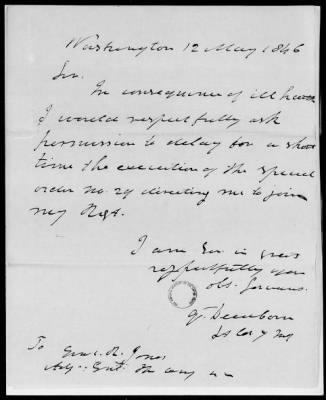 Washington 12 May 1846
Sir.
In consequence of ill health
I would respectfully ask
permission to delay for a short
time the execution of the special
order no. 29 directing me to join
my Regt.
I am Sir in great
respectfully your
obt. servant.
G. Dearborn
To Genl. R. Jones
Adj. Genl.